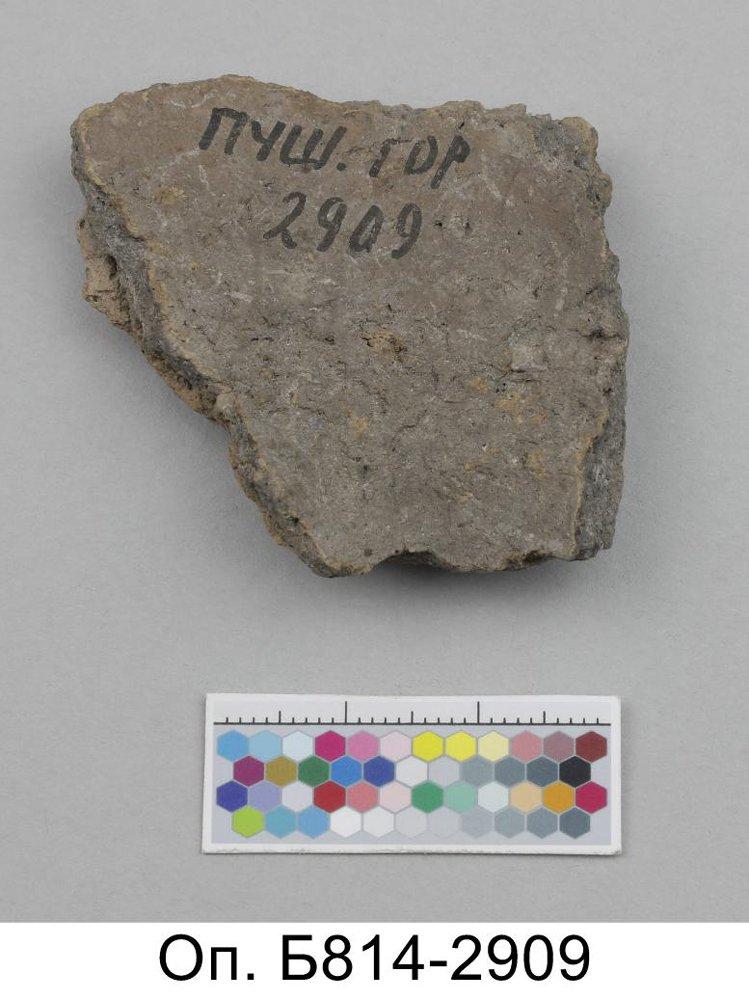 ПУШ. ГОР
2909
Оп. Б814-2909